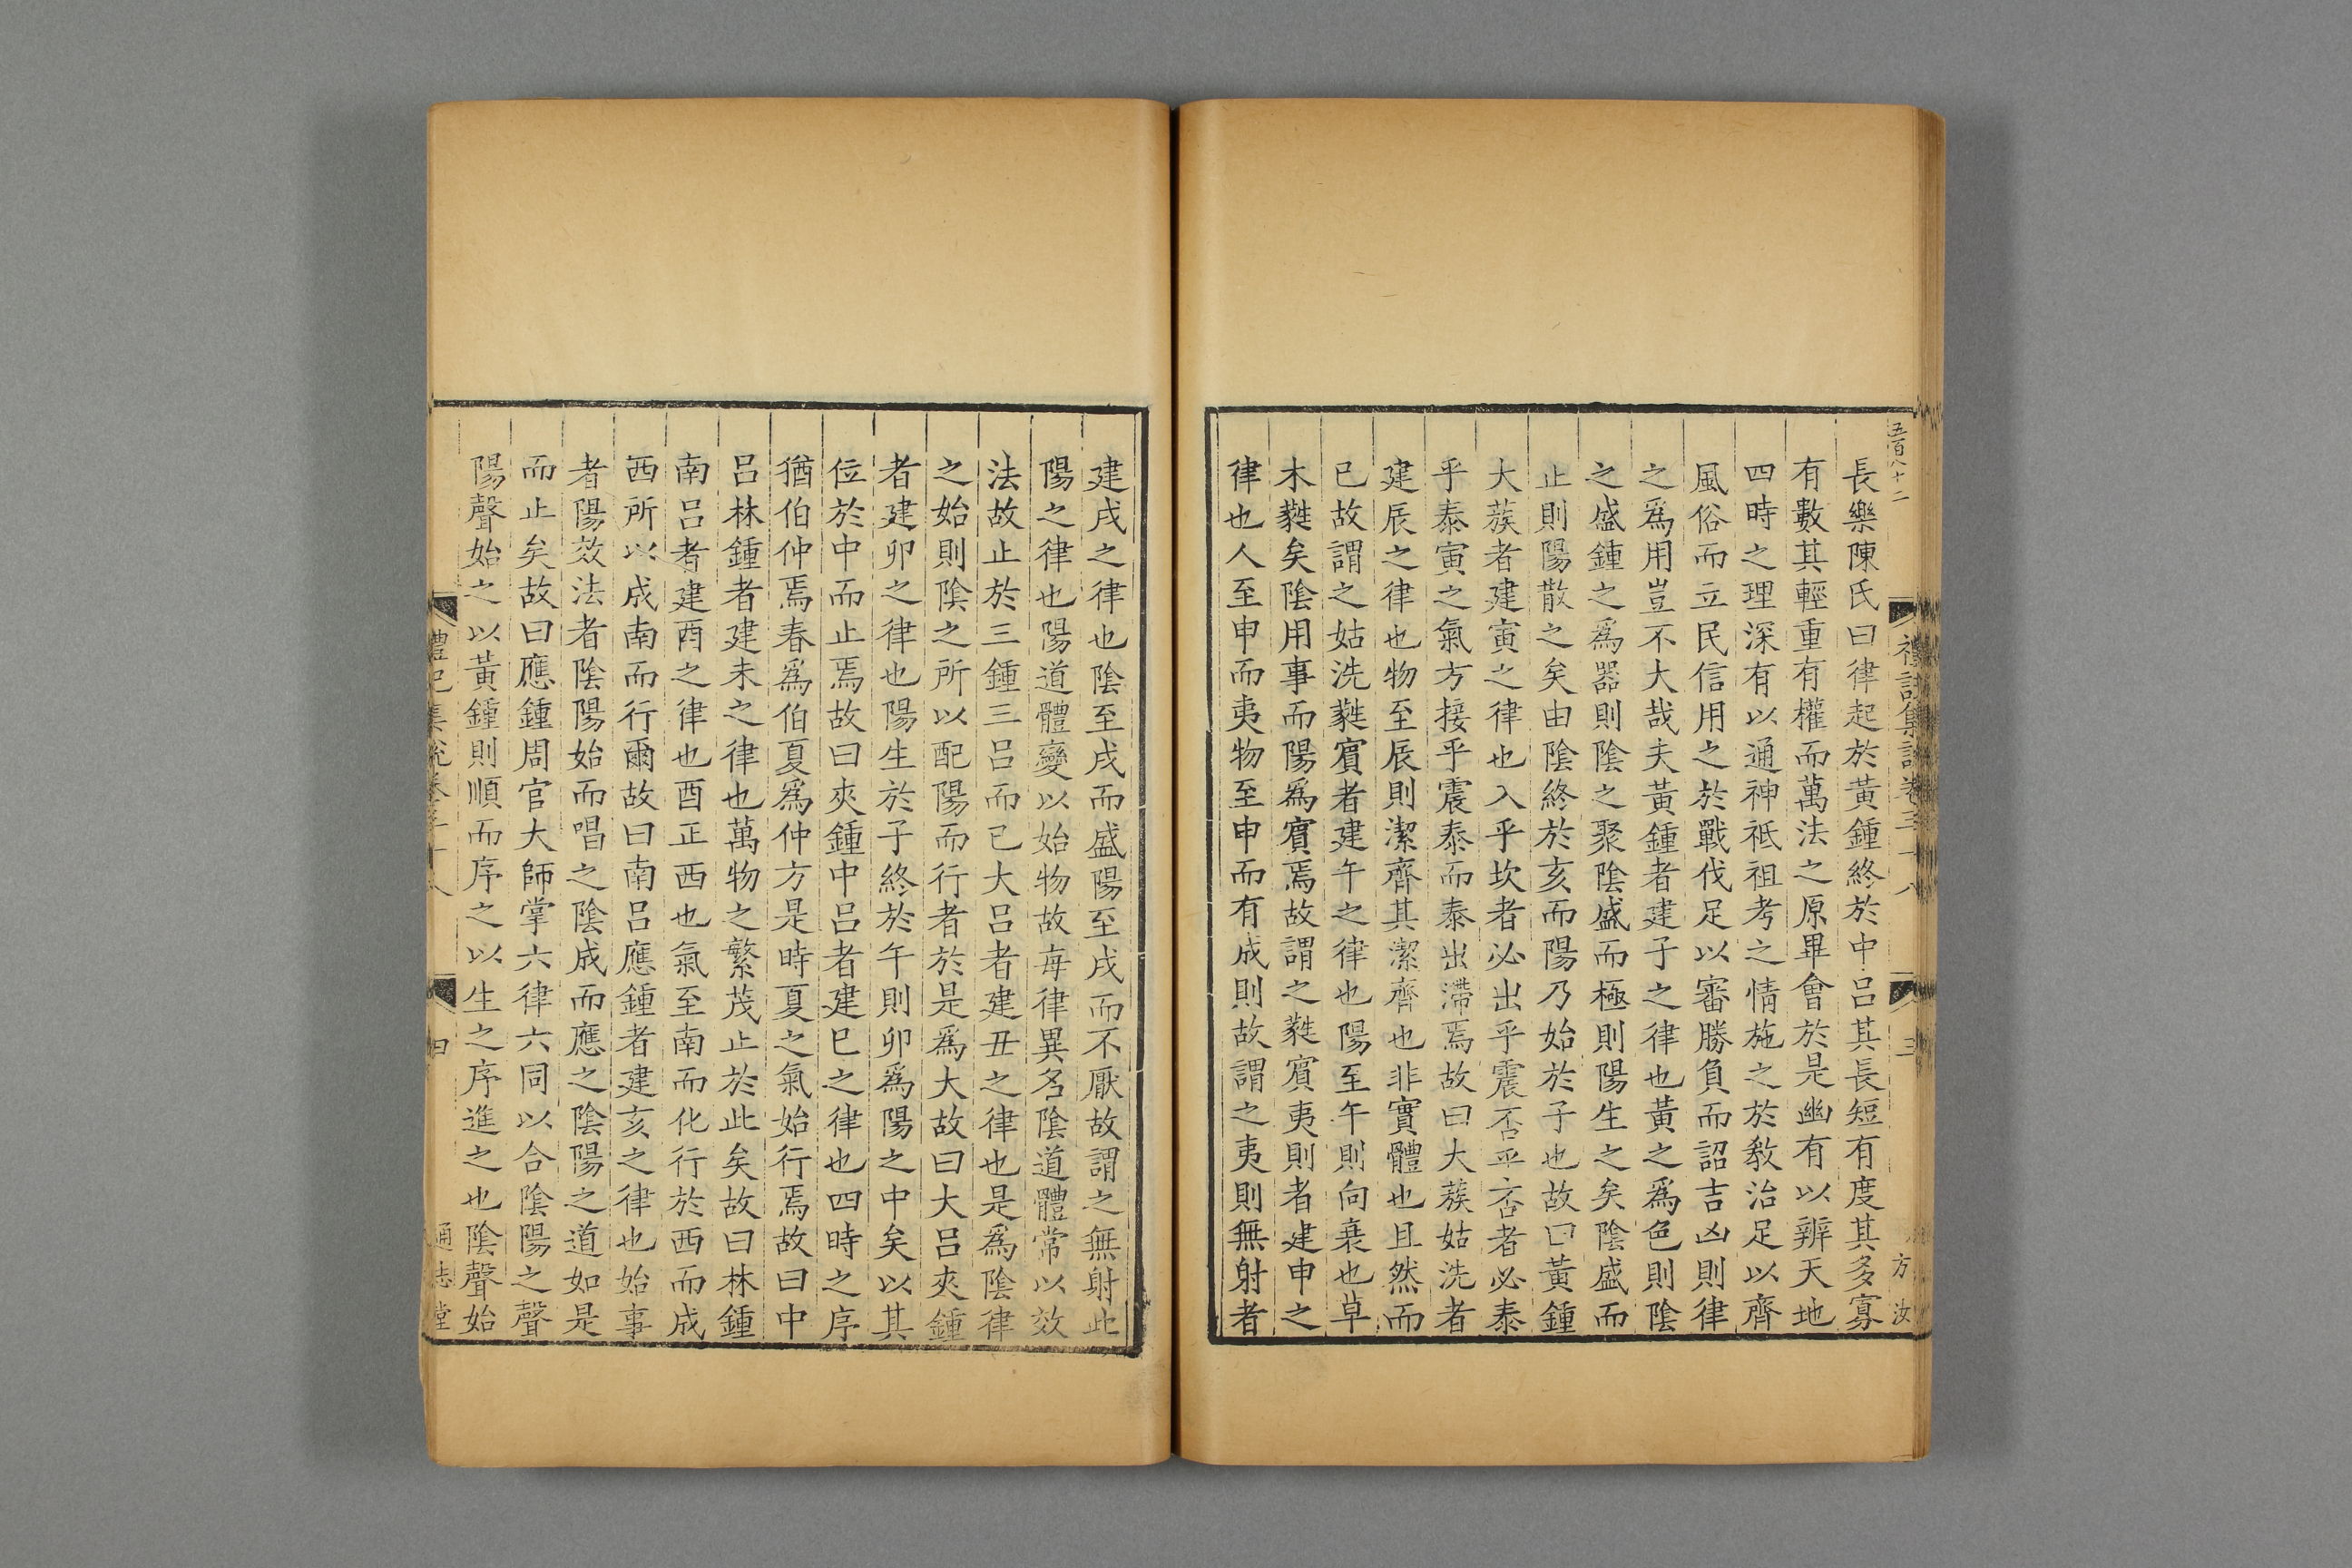 五百八十二
長樂陳氏曰律起於黃鍾終於中吕其長短有度其多寡
有數其輕重有權而萬法之原畢會於是幽有以辨天地
四時之理深有以通神祇祖考之情施之於敎治足以齊
風俗而立民信用之於戰伐足以審勝負而詔吉凶則律
之爲用豈不大哉夫黃鍾者建子之律也黃之爲色則陰
之盛鍾之爲器則陰之聚陰盛而極則陽生之矣陰盛而
止則陽散之矣由陰終於亥而陽乃始於子也故曰黃鍾
大蔟者建寅之律也入乎坎者必出乎震否乎否者必泰
乎泰寅之氣方接乎震泰而泰出滯焉故曰大蔟姑洗者
建辰之律也物至辰則潔齊其潔齊也非實體也且然而
已故謂之姑洗蕤賔者建午之律也陽至午則向衰也草
木蕤矣陰用事而陽爲賔焉故謂之蕤賔夷則者建申之
律也人至申而夷物至申而有成則故謂之夷則無射者
禮記集說卷三十八
三
方汝
建戌之律也陰至戌而盛陽至戌而不厭故謂之無射此
陽之律也陽道體變以始物故每律異名陰道體常以效
法故止於三鍾三吕而已大吕者建丑之律也是爲陰律
之始則陰之所以配陽而行者於是爲大故曰大吕夾鍾
者建卯之律也陽生於子終於午則卯爲陽之中矣以其
位於中而止焉故曰夾鍾中吕者建巳之律也四時之序
猶伯仲焉春爲伯夏爲仲方是時夏之氣始行焉故曰中
吕林鍾者建未之律也萬物之繁茂止於此矣故曰林鍾
南吕者建酉之律也酉正西也氣至南而化行於西而成
西所以成南而行爾故曰南吕應鍾者建亥之律也始事
者陽效法者陰陽始而唱之陰成而應之陰陽之道如是
而止矣故曰應鍾周官大師掌六律六同以合陰陽之聲
陽聲始之以黃鍾則順而序之以生之序進之也陰聲始
禮記集說卷三十八
四
通志堂